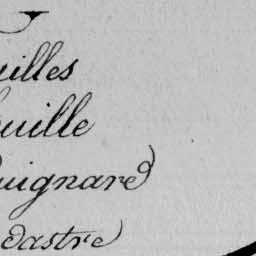 uilles
ouille
uignard
dastre